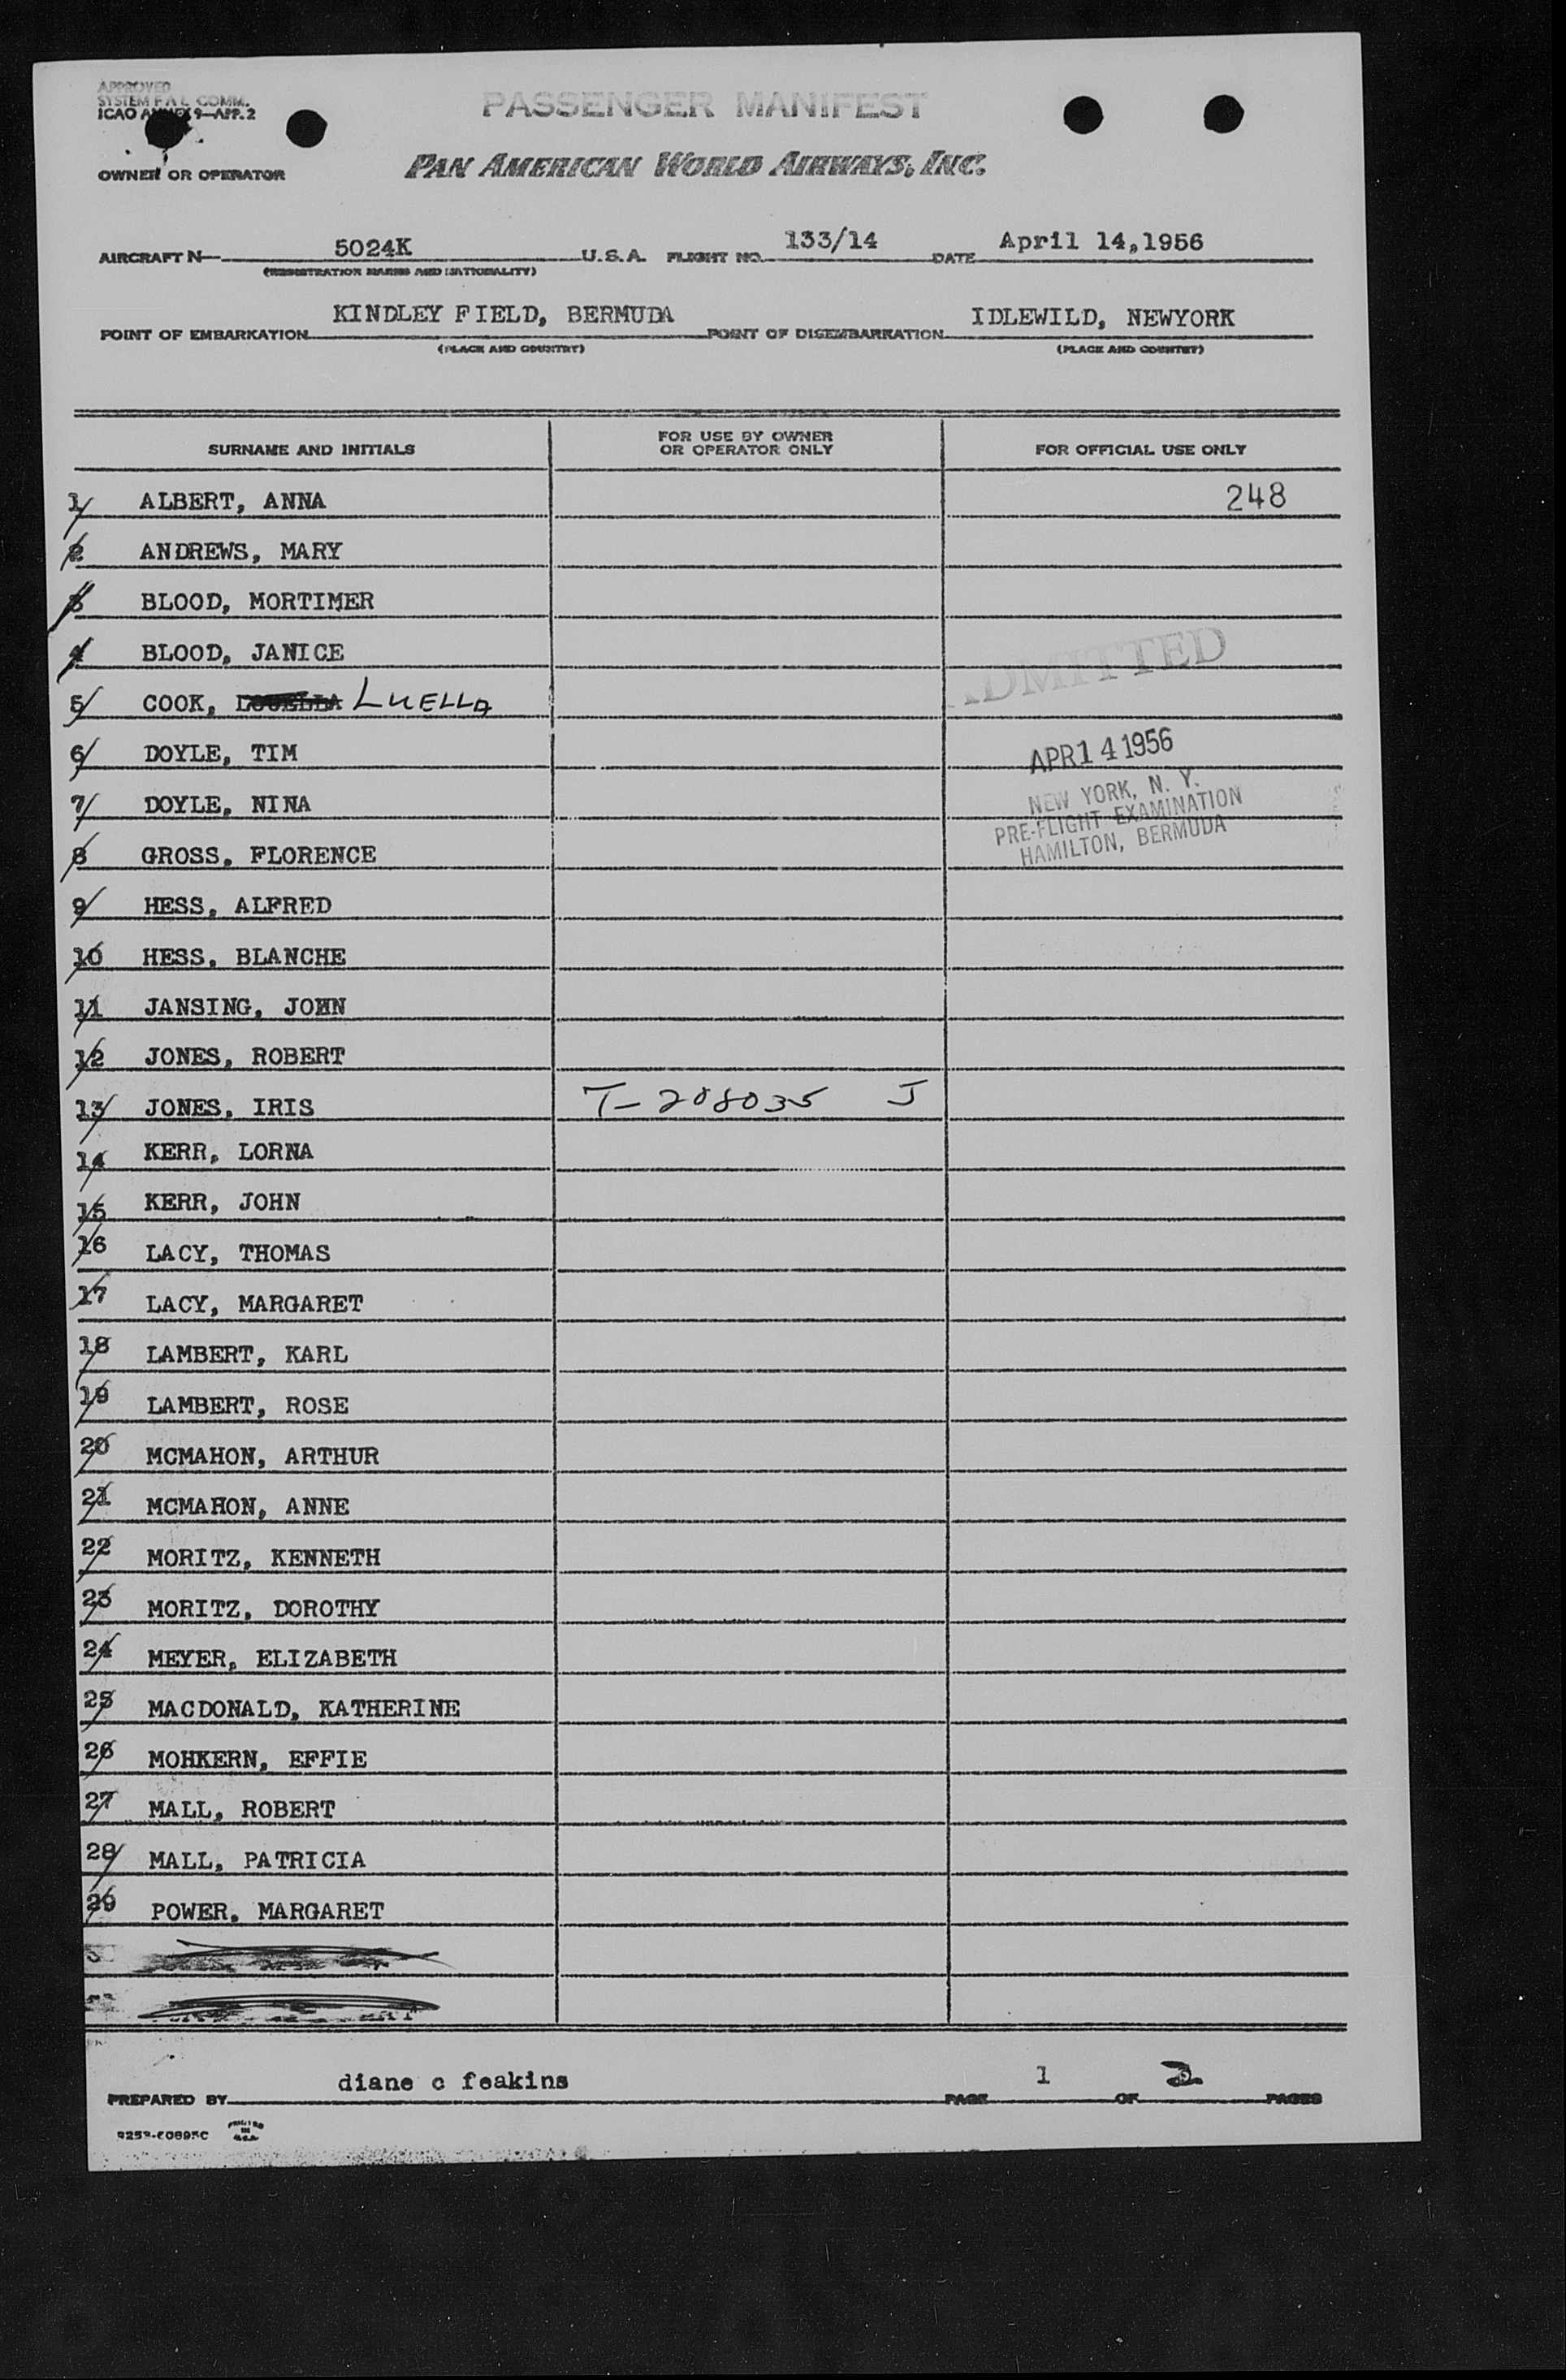 APPROVED
SYSTEM F A L COMM.
ICAO ANNEX 9—APP. 2
PASSENGER MANIFEST
OWNER OR OPERATOR
PAN AMERICAN WORLD AIRWAYS, INC.
AIRCRAFT N— 5024K U.S.A. FLIGHT NO. 133/14 DATE April 14,1956
(REGISTRATION MARKS AND NATIONALITY)
POINT OF EMBARKATION KINDLEY FIELD, BERMUDA POINT OF DISEMBARKATION IDLEWILD, NEWYORK
(PLACE AND COUNTRY) (PLACE AND COUNTRY)
SURNAME AND INITIALS FOR USE BY OWNER OR OPERATOR ONLY FOR OFFICIAL USE ONLY
1 ALBERT, ANNA 248
2 ANDREWS, MARY
3 BLOOD, MORTIMER
4 BLOOD, JANICE
ADMITTED
5 COOK, LUELLA
6 DOYLE, TIM
APR 14 1956
7 DOYLE, NINA
NEW YORK, N. Y.
PRE-FLIGHT EXAMINATION
HAMILTON, BERMUDA
8 GROSS, FLORENCE
9 HESS, ALFRED
10 HESS, BLANCHE
11 JANSING, JOHN
12 JONES, ROBERT
13 JONES, IRIS T-208035 J
14 KERR, LORNA
15 KERR, JOHN
16 LACY, THOMAS
17 LACY, MARGARET
18 LAMBERT, KARL
19 LAMBERT, ROSE
20 MCMAHON, ARTHUR
21 MCMAHON, ANNE
22 MORITZ, KENNETH
23 MORITZ, DOROTHY
24 MEYER, ELIZABETH
25 MACDONALD, KATHERINE
26 MOHKERN, EFFIE
27 MALL, ROBERT
28 MALL, PATRICIA
29 POWER, MARGARET
PREPARED BY diane c feakins PAGE 1 OF 2 PAGES
PRINTED IN U.S.A.